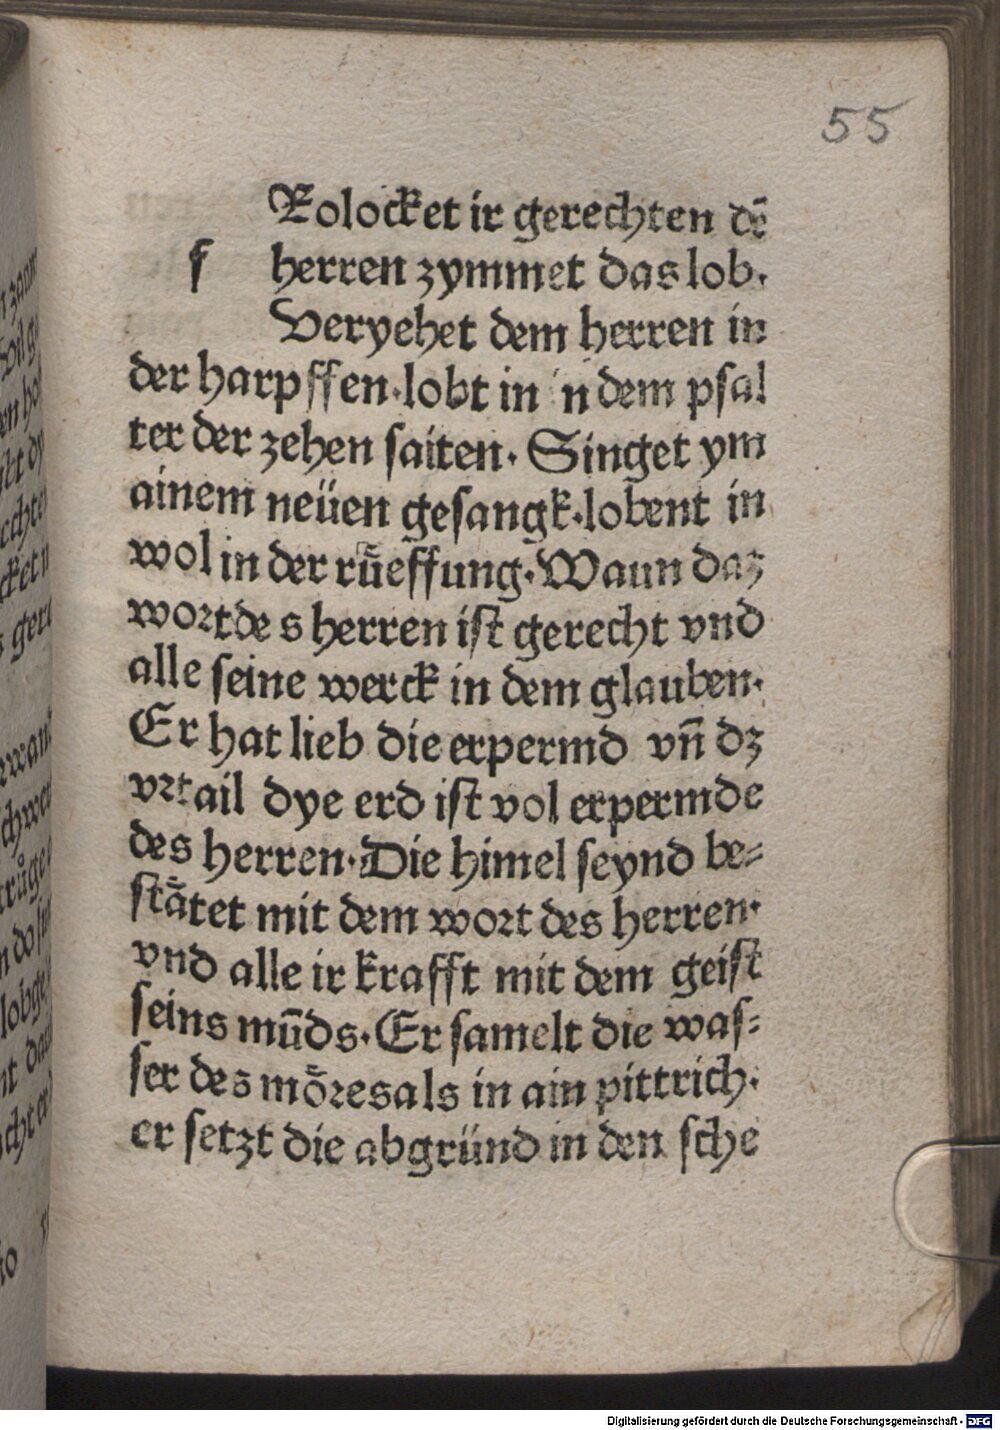 55
Rolocket ir gerechten dē
f herren zymmet das lob.
Veryehet dem herren in
der harpffen·lobt in in dem psal
ter der zehen saiten· Singet ym
ainem neüen gesangk·lobent in
wol in der rūeffung·Waun daz
wort de s herren ist gerecht vnd
alle seine werck in dem glauben·
Er hat lieb die erpermd vn̄ dz
vrtail dye erd ist vol erpermde
des herren·Die himel seynd be⸗
stātet mit dem wort des herren·
vnd alle ir krafft mit dem geist
seins mūds·Er samelt die was⸗
ser des mōres als in ain pittrich·
er setzt die abgründ in den sche
Digitalisierung gefördert durch die Deutsche Forschungsgemeinschaft - DFG